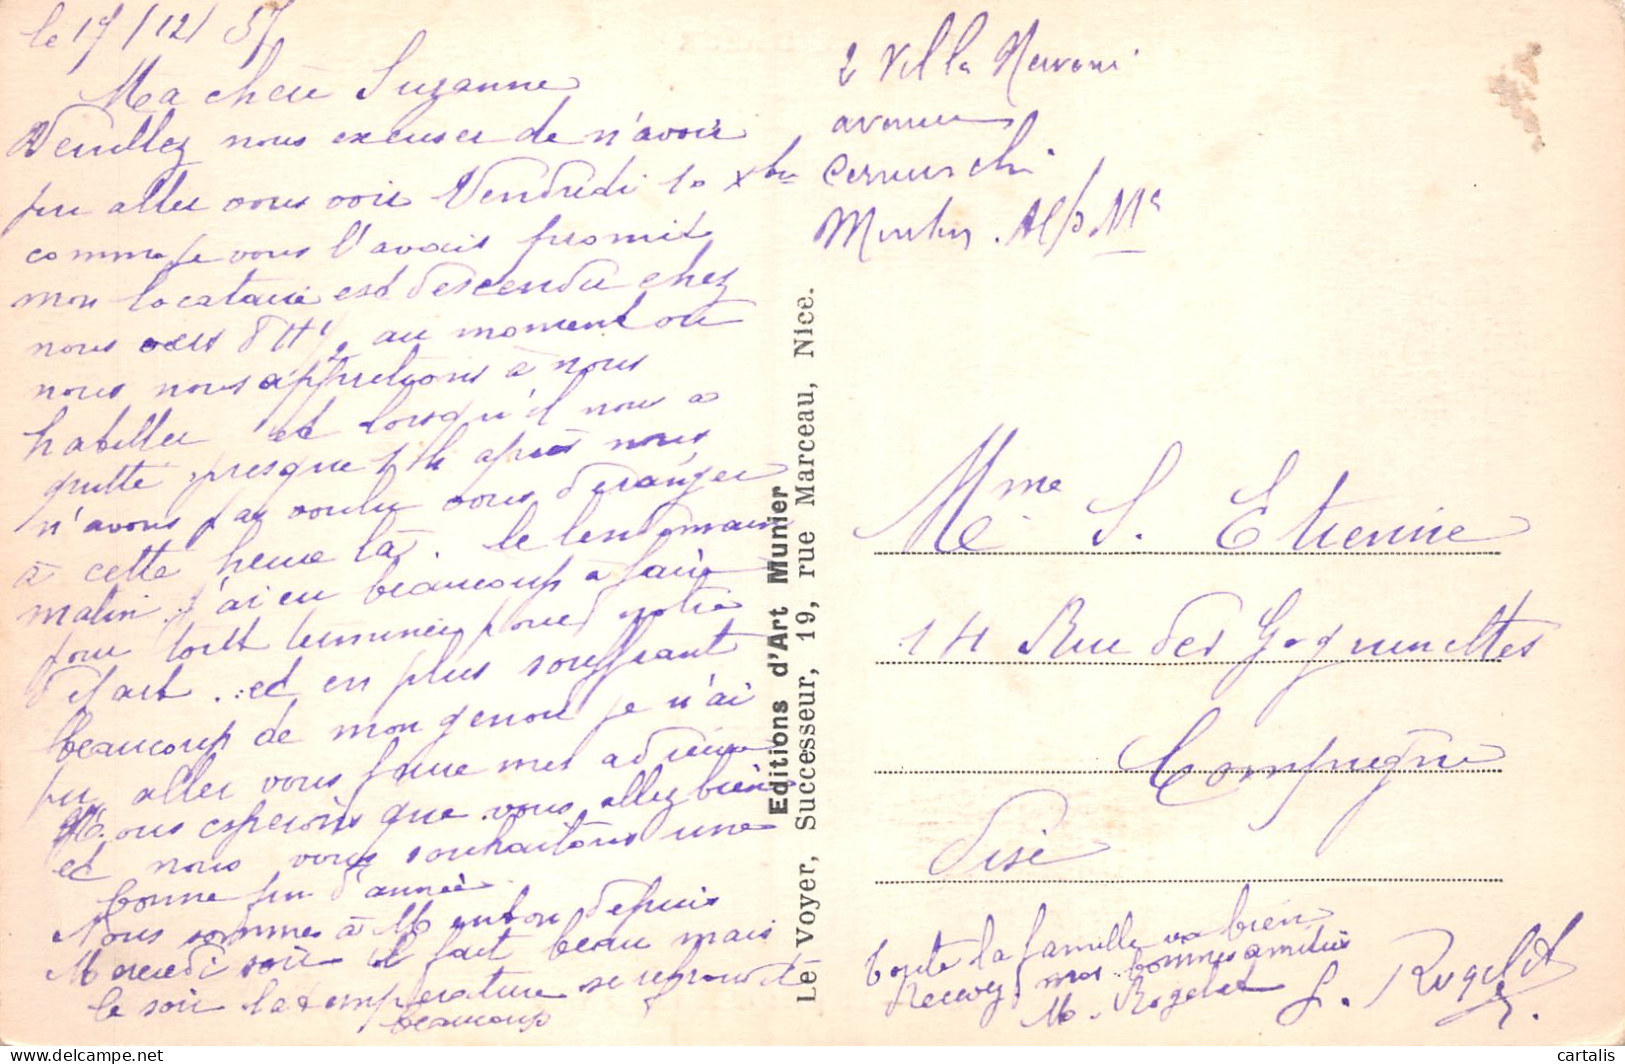 le 17/12/37
Ma chère Suzanne
Veuillez nous excuser de n'avoir
pu aller vous voir Vendredi 10 Xbre
comme je vous l'avais promis
mon locataire est descendu chez
nous vers 5 H ½, au moment où
nous nous apprêtions à nous
habiller et lorsqu'il nous a
quitté presque 7 h après nous
n'avons pas voulu vous déranger
à cette heure là. le lendemain
matin j'ai eu beaucoup à faire
pour tout terminer pour notre
départ. et en plus souffrant
beaucoup de mon genou je n'ai
pu aller vous faire mes adieux
Nous espérons que vous allez bien
et nous vous souhaitons une
bonne fin d'année
Nous sommes à Menton depuis
Mercredi soir il fait beau mais
le soir la température se refroidit
beaucoup
Editions d'Art Munier
Le Voyer, Successeur, 19, rue Marceau, Nice.
2 Villa
avenue
Cernuschi
Menton. Alp. Mes
Mme S. Etienne
14 Rue des
Compiègne
Oise
toute la famille va bien
Recevez mes bonnes amitiés
M. Rogelet L. Rogelet
cartalis